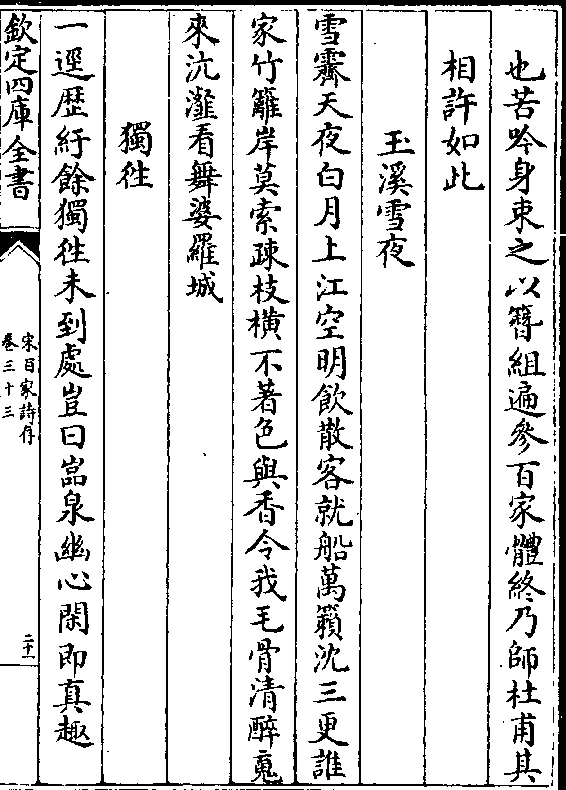 也苦吟身束之以簪組遍參百家體終乃師杜甫其
相許如此
玉溪雪夜
雪霽天夜白月上江空明飲散客就船萬籟沈三更誰
家竹籬岸莫索疎枝橫不著色與香令我毛骨清醉䰟
來沆瀣看舞婆羅城
獨徃
一逕歴紆餘獨徃未到處豈曰嵓泉幽心閑即真趣
欽定四庫全書
宋百家詩存
卷三十三
二十一